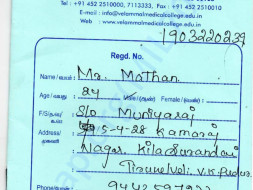 Tel : +91 452 2510000, 7113333, Fax : +91 452 2510010
E-mail : info@velammalmedicalcollege.edu.in
Web : www.velammalmedicalcollege.edu.in
1903220239
Regd. No.
Name / பெயர் : Mr. Mathan
Age / வயது : 24 Male / (ஆண்) Female / (பெண்) :
F/S/த/க/ : S/o Muniyaraj
Address / 5-4-28 Kamaraj
முகவரி Nagar, Kila Surandai
Tirunelveli V.K. Pudur
Phone/போன் :